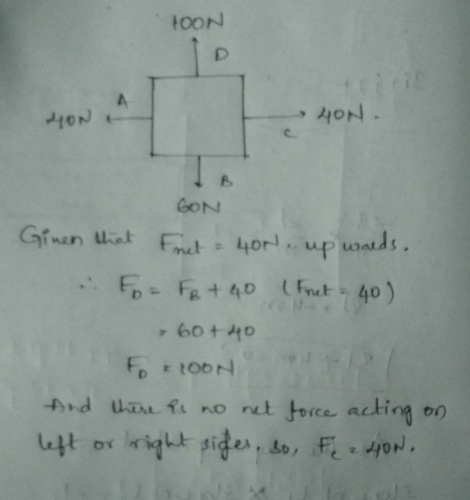 100N
D
A
40N
40N.
C
B
60N
Given that Fnet = 40N. upwards.
∴ FD = FB + 40 (Fnet = 40)
= 60+40
FD = 100N
And there is no net force acting on
left or right sides. so, Fc = 40N.